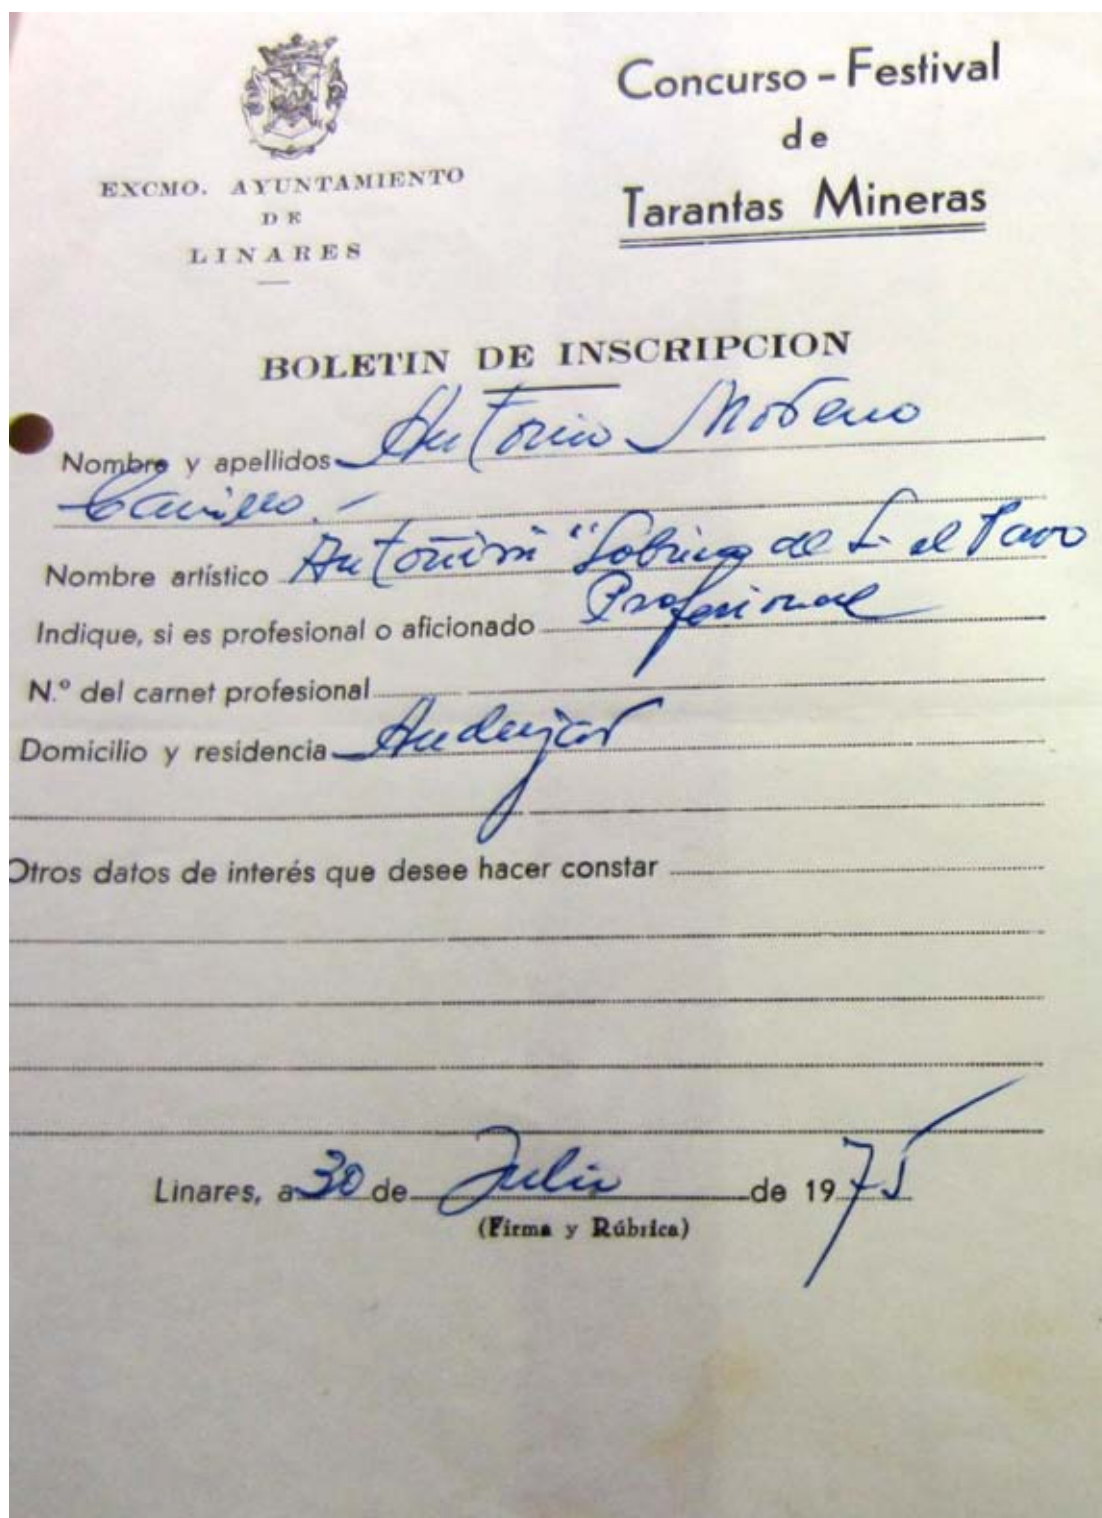 EXCMO. AYUNTAMIENTO
DE
LINARES
Concurso - Festival
de
Tarantas Mineras
BOLETIN DE INSCRIPCION
Nombre y apellidos Antonio Moreno
Nombre artístico Antoñin "Sobrino de el Pavo
Indique, si es profesional o aficionado Profesional
N.º del carnet profesional
Domicilio y residencia Andujar
Otros datos de interés que desee hacer constar
Linares, a 30 de Julio de 1975
(Firma y Rúbrica)